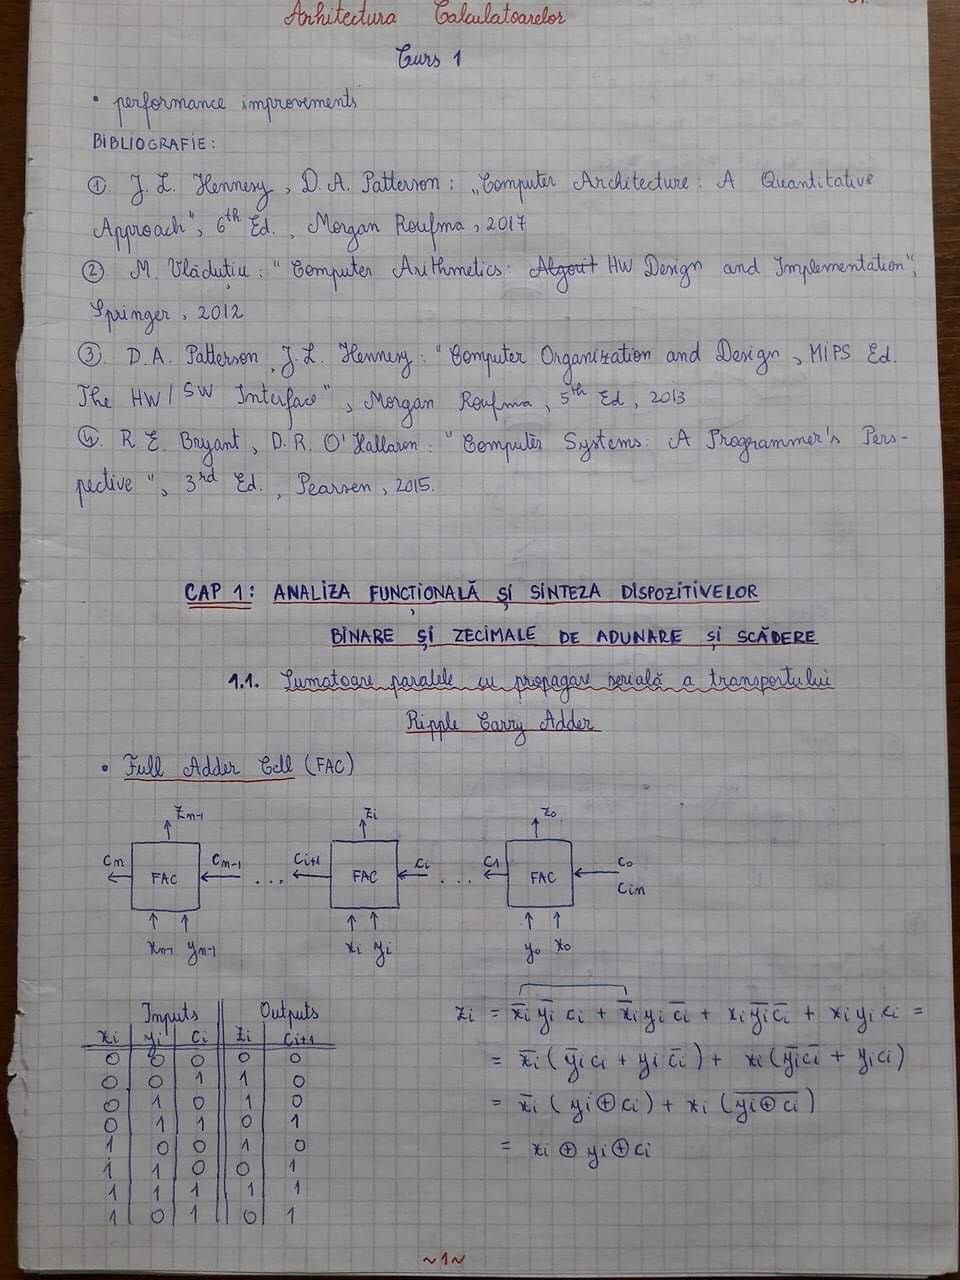 Arhitectura Calculatoarelor
Curs 1
• performance improvements
BIBLIOGRAFIE:
①. J. L. Hennesy, D. A. Patterson: „Computer Architecture: A Quantitative
Approach", 6th Ed., Morgan Roufma, 2017
②. M. Vlăduțiu: "Computer Arithmetics: Algorit HW Design and Implementation",
Springer, 2012
③. D.A. Patterson, J.L. Hennesy: "Computer Organization and Design, MIPS Ed.
The HW/SW Interface", Morgan Roufma, 5th Ed, 2013
④. R E. Bryant, D.R. O'Hallaron: "Computer Systems: A Programmer's Pers-
pective", 3rd Ed., Pearson, 2015.
CAP 1: ANALIZA FUNCȚIONALĂ ȘI SINTEZA DISPOZITIVELOR
BINARE ȘI ZECIMALE DE ADUNARE ȘI SCĂDERE
1.1. Sumatoare paralele cu propagare serială a transportului
Ripple Carry Adder
• Full Adder Cell (FAC)
zn-1 zi z0
cn FAC cn-1 ... ci+1 FAC ci ... c1 FAC c0
cin
xn-1 yn-1 xi yi y0 x0
Inputs Outputs
xi yi ci zi ci+1
0 0 0 0 0
0 0 1 1 0
0 1 0 1 0
0 1 1 0 1
1 0 0 1 0
1 1 0 0 1
1 1 1 1 1
1 0 1 0 1
zi = x̄i ȳi ci + x̄i yi c̄i + xi ȳi c̄i + xi yi ci =
= x̄i (ȳi ci + yi c̄i) + xi (ȳi c̄i + yi ci)
= x̄i (yi ⊕ ci) + xi (y̅i̅ ̅⊕̅ ̅c̅i̅)
= xi ⊕ yi ⊕ ci
~1~